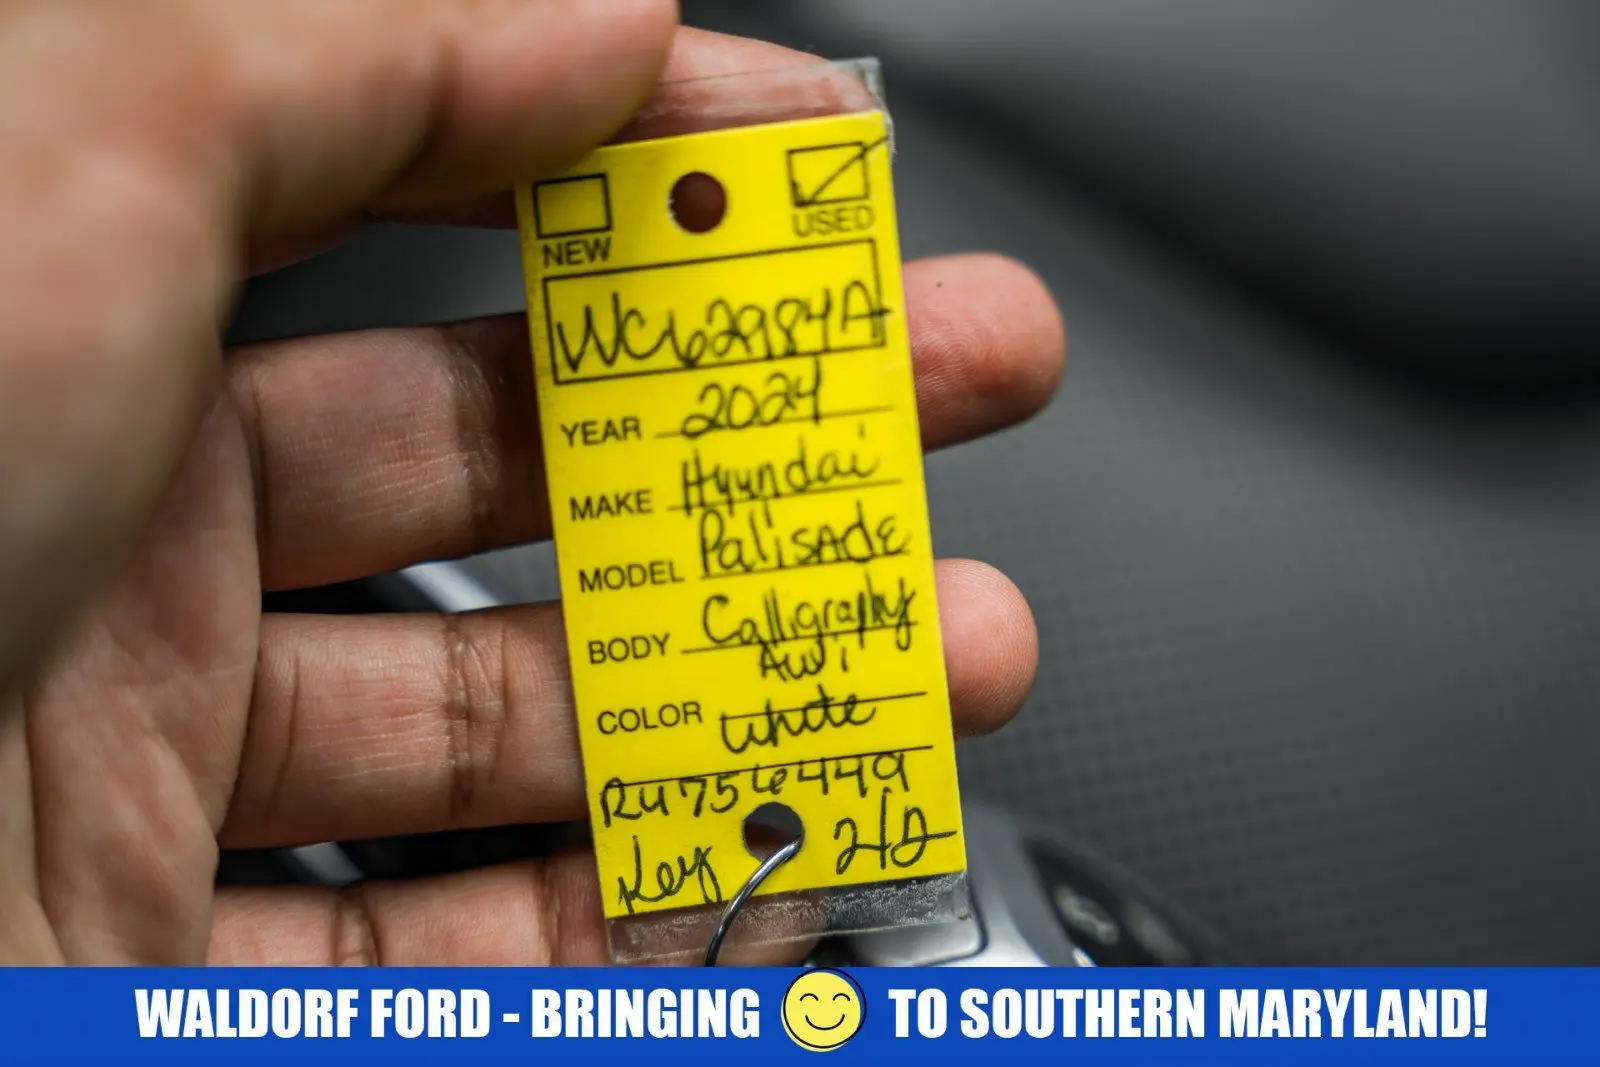 NEW USED
WC62984A
YEAR 2024
MAKE Hyundai
MODEL Palisade
BODY Calligraphy
AWD
COLOR White
RU756449
Key 2/2
WALDORF FORD - BRINGING TO SOUTHERN MARYLAND!